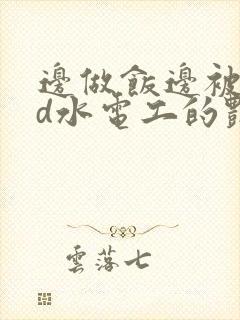 邊做飯邊被
d水電工的
雲落七